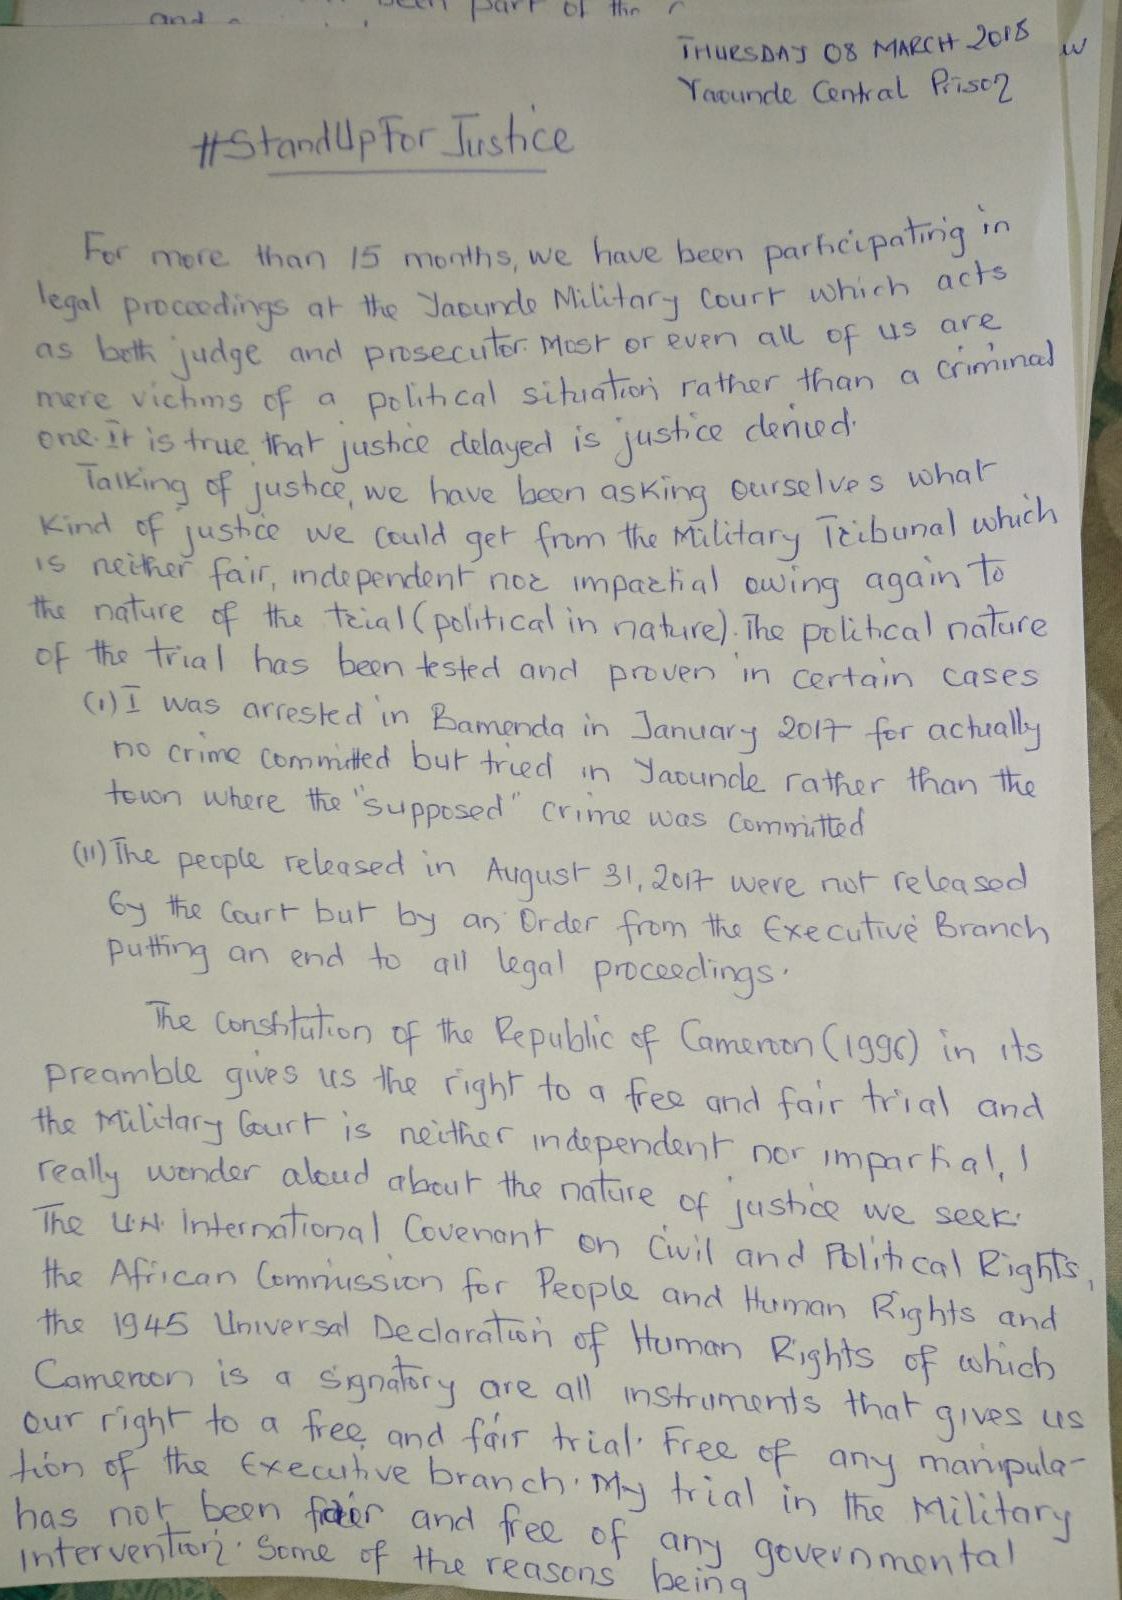 been part of the
and a
THURSDAY 08 MARCH 2018
w
Yaounde Central Prison
#StandUpForJustice
For more than 15 months, we have been participating in
legal proceedings at the Yaounde Military Court which acts
as both judge and prosecutor. Most or even all of us are
mere victims of a political situation rather than a criminal
one. It is true that justice delayed is justice denied.
Talking of justice, we have been asking ourselves what
kind of justice we could get from the Military Tribunal which
is neither fair, independent nor impartial owing again to
the nature of the trial (political in nature). The political nature
of the trial has been tested and proven in certain cases
(i) I was arrested in Bamenda in January 2017 for actually
no crime committed but tried in Yaounde rather than the
town where the "supposed" crime was committed
(ii) The people released in August 31, 2017 were not released
by the court but by an Order from the Executive Branch
putting an end to all legal proceedings.
The constitution of the Republic of Cameroon (1996) in its
preamble gives us the right to a free and fair trial and
the Military Court is neither independent nor impartial, I
really wonder aloud about the nature of justice we seek.
The U.N. International Covenant on Civil and Political Rights,
the African Commission for People and Human Rights and
the 1945 Universal Declaration of Human Rights of which
Cameroon is a signatory are all instruments that gives us
our right to a free and fair trial. Free of any manipula-
tion of the Executive branch. My trial in the Military
has not been fair and free of any governmental
intervention. Some of the reasons being